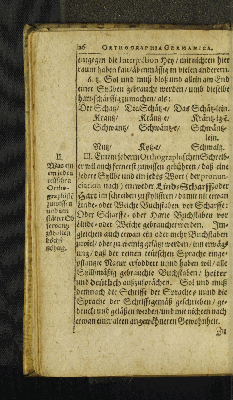 26 ORTHOGRAPHIA GERMANICA.
entgegen die Interjection Hey / mit nichten hier
raum haben kan / als wenig in vielen anderen.
6. tz. Sol und muß bloß und allein am End
einer Syllben gebraucht werden / und dieselbe
hart schärffig zu machen / als:
Der Schatz / Die Schätze / Das Schätzlein.
Krantz / Kräntze / Kräntzlein
Schwantz / Schwäntze / Schwäntz-
lein.
Nutz / Schmaltz.
II.
Was ein
em jeden
Ortho-
graphisti
zuwissen
II. Einem jedem Orthographischen Schreib-
er wil auch fernerst zuwissen gebühren / daß eine
jedere Syllbe und ein jedes Wort (der pronun-
ciation nach) entweder Lind- Scharff oder
Hart im schreiben zu
Linde- oder Weiche Buchstaben vor Scharffe:
Oder Scharffe- oder Harte Buchstaben vor
Linde- oder Weiche gebraucht werden. Im-
gleichen auch etwan ein oder mehr Buchstaben
oder zu wenig gesetzt werden / in erwäg-
ung / daß der reinen teutschen Sprache einge-
pflantzte Natur erfordert und haben wil / alle
Syllbmässig gebrauchte Buchstaben / heiter
und deutlich außzusprächen. Sol und muß
demnach die Schrifft der Sprache / und die
Sprache der Schrifft gemäß geschrieben / ge-
druckt und geläsen werden / und mit nichten nach
etwan einer alten angewähneten Gewohnheit.